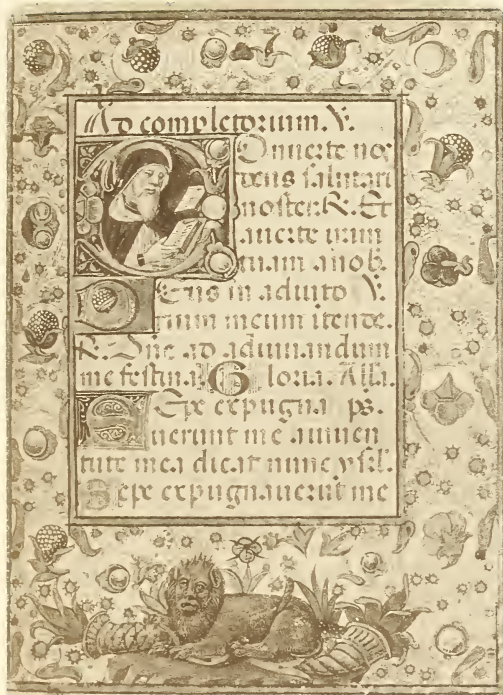 Ad completorium. V.
Onuerte nos
deus salutari
noster. R. Et
auerte iram
tuam a nob.
Eus in adiuto V.
rium meum itende.
R. Dne ad adiuuandum
me festina. Gloria. Alla.
Epe expugna ps.
uerunt me a iuuen
tute mea dicat nunc ysrl.
Sepe expugnauerunt me